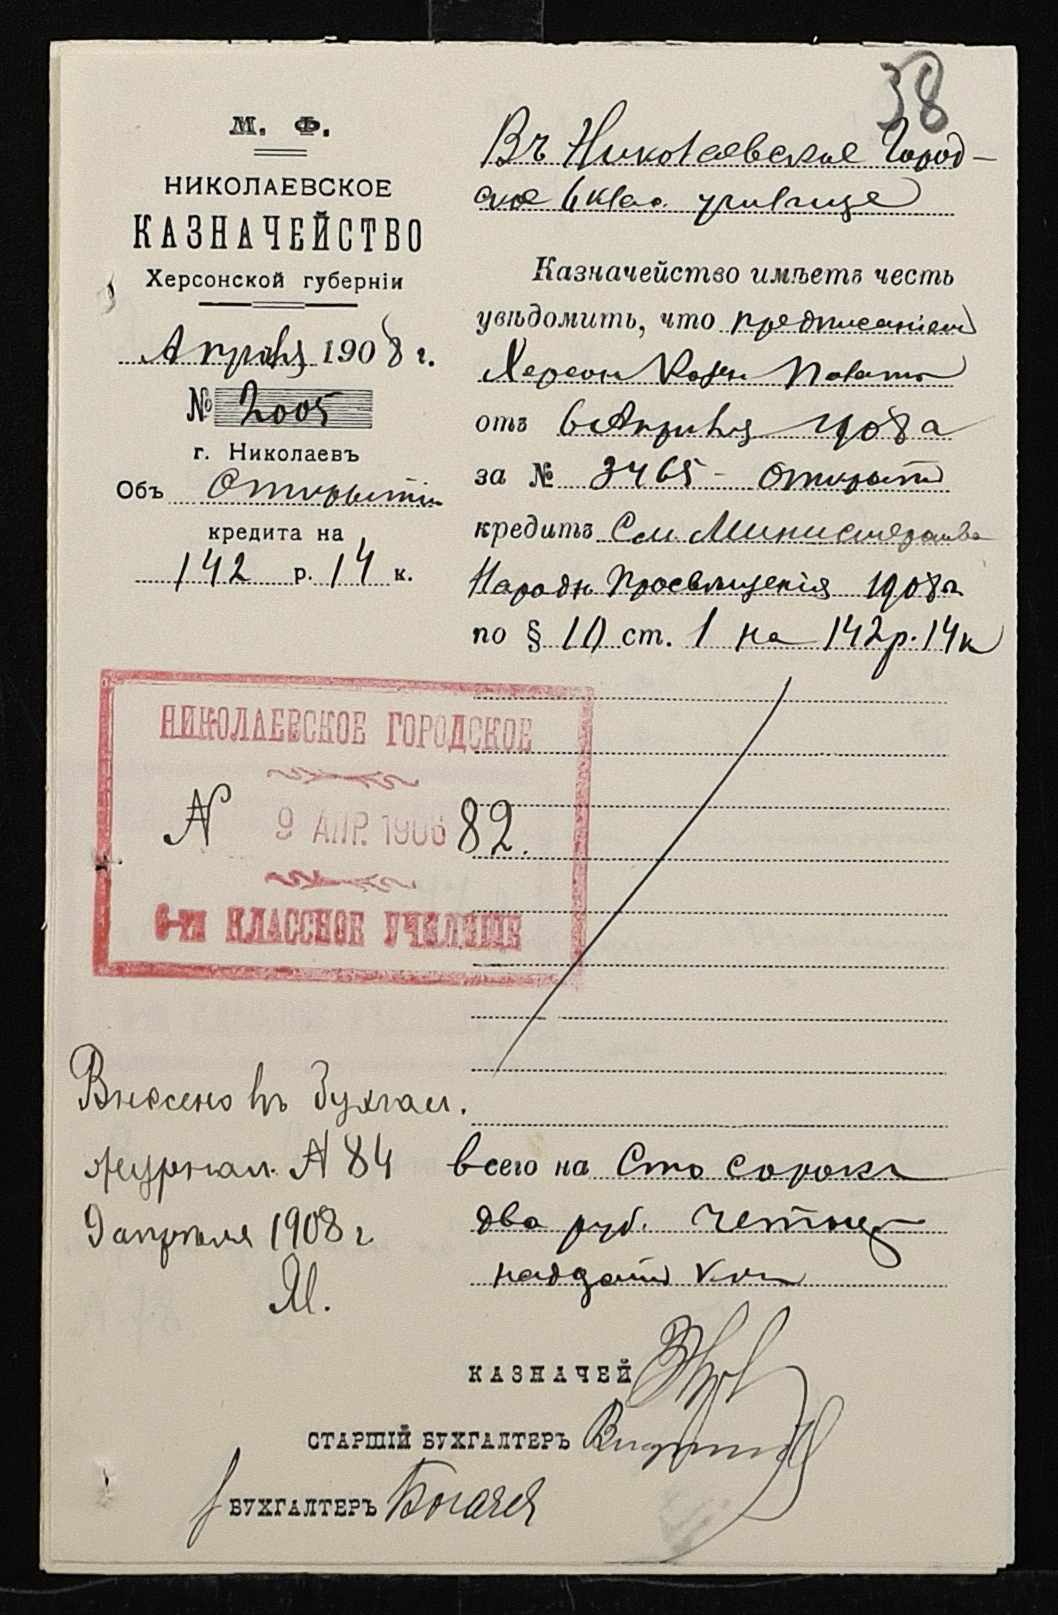 38
М. Ф.
НИКОЛАЕВСКОЕ
КАЗНАЧЕЙСТВО
Херсонской губерніи
Апрѣля 1908 г.
№ 2005
г. Николаевъ
Объ Открытіи
кредита на
142 р. 14 к.
Въ Николаевское Город-
ское 6 клас. училище
Казначейство имѣетъ честь
увѣдомить, что предписаніем
Херсон Казен Палаты
отъ 6 Апрѣля 1908 г
за № 3465 - открыт
кредитъ См. Министерства
Народн Просвѣщенія 1908 г
по § 10 ст. 1 на 142 р. 14 к
НИКОЛАЕВСКОЕ ГОРОДСКОЕ
№ 9 АПР. 1908 82.
6-ти КЛАССНОЕ УЧИЛИЩЕ
Внесено въ бухгал.
журнал. № 84
9 апрѣля 1908 г
всего на Сто сорокъ
два руб. четыр
надцать коп
КАЗНАЧЕЙ
СТАРШІЙ БУХГАЛТЕРЪ
БУХГАЛТЕРЪ